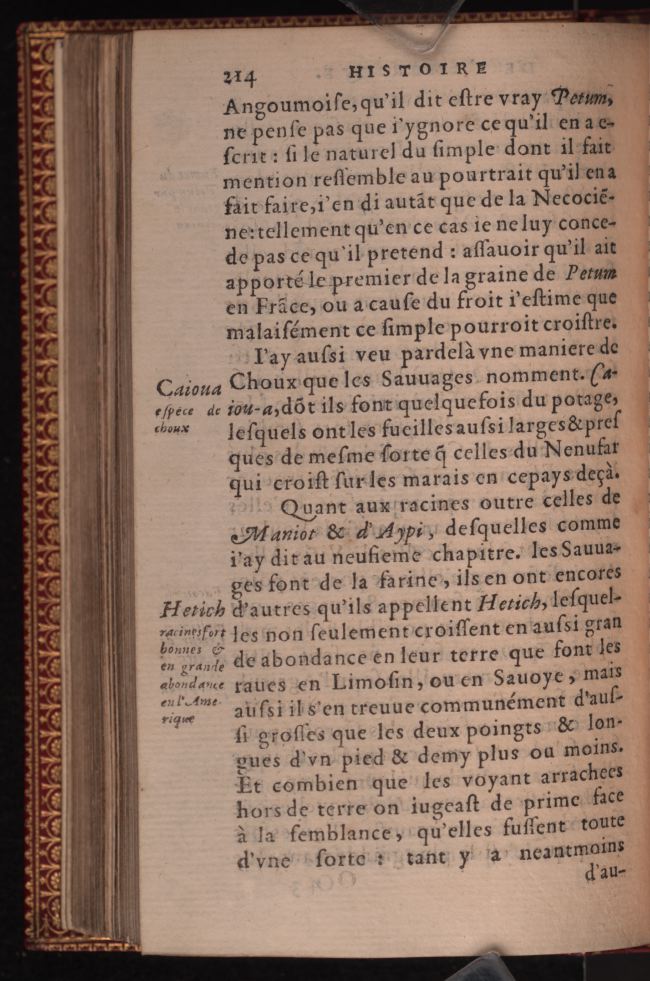 214 HISTOIRE
Angoumoiſe, qu'il dit eſtre vray Petum,
ne penſe pas que i'ygnore ce qu'il en a e-
ſcrit : ſi le naturel du ſimple dont il fait
mention reſſemble au pourtrait qu'il en a
fait faire, i'en di autãt que de la Necociẽ-
ne: tellement qu'en ce cas ie ne luy conce-
de pas ce qu'il pretend : aſſauoir qu'il ait
apporté le premier de la graine de Petum
en Frãce, ou a cauſe du froit i'eſtime que
malaiſément ce ſimple pourroit croiſtre.
I'ay auſſi veu pardelà vne maniere de
Choux que les Sauuages nomment. Ca-
iou-a, dõt ils font quelquefois du potage,
leſquels ont les fueilles auſſi larges & preſ
ques de meſme ſorte q̃ celles du Nenufar
qui croiſt ſur les marais en ce pays deçà.
Quant aux racines outre celles de
Maniot & d'Aypi, deſquelles comme
i'ay dit au neufieme chapitre. les Sauua-
ges font de la farine, ils en ont encores
d'autres qu'ils appellent Hetich, leſquel-
les non ſeulement croiſſent en auſſi gran
de abondance en leur terre que font les
raues en Limoſin, ou en Sauoye, mais
auſſi il s'en treuue communément d'auſ-
ſi groſſes que les deux poingts & lon-
gues d'vn pied & demy plus ou moins.
Et combien que les voyant arrachees
hors de terre on iugeaſt de prime face
à la ſemblance, qu'elles fuſſent toute
d'vne ſorte : tant y a neantmoins
d'au-
Caioua
eſpece de
choux
Hetich
racines fort
bonnes &
en grande
abondance
en l'Ame-
rique